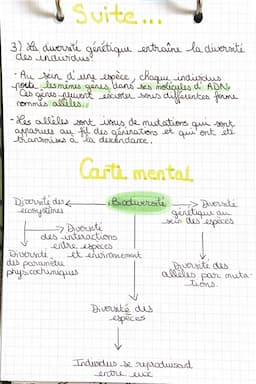 Suite...
3) La diversité génétique entraîne la diversité
des individus.
- Au sein d'une espèce, chaque individus
porte les mêmes gènes dans ses molécules d'ADN.
Ces gènes peuvent exister sous différentes forme
nommés allèles.
- Les allèles sont issus de mutations qui sont
apparues au fil des générations et qui ont été
transmises à la descendance.
Carte mental
Diversité des écosystèmes
Biodiversité
Diversité génétique au sein des espèces
Diversité des interactions entre espèces et environnement
Diversité des paramètre physicochimiques
Diversité des allèles par mutations.
Diversité des espèces
Individus se reproduisant entre eux